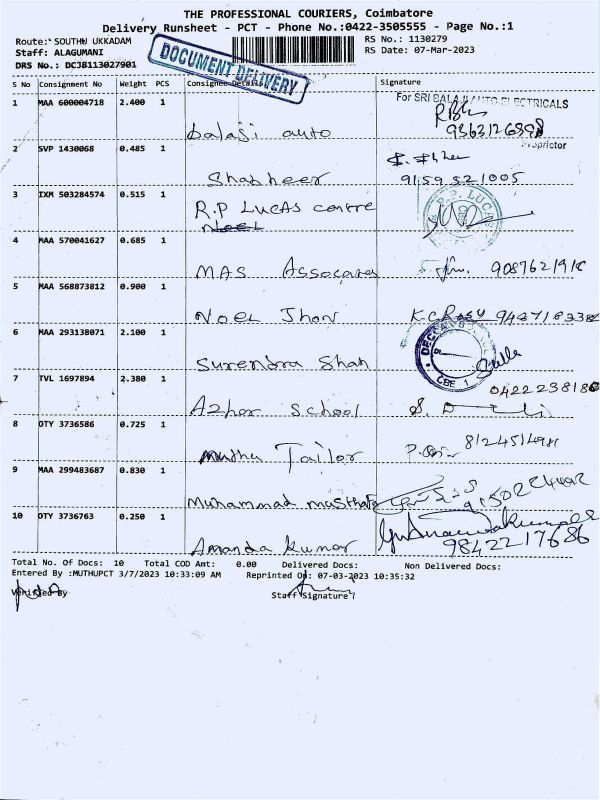 THE PROFESSIONAL COURIERS, Coimbatore
Delivery Runsheet - PCT - Phone No.:0422-3505555 - Page No.:1
Route: SOUTHU UKKADAM
RS No.: 1130279
Staff: ALAGUMANI
RS Date: 07-Mar-2023
DRS No.: DCJB113027901
DOCUMENT DELIVERY
S No Consignment No Weight PCS Consignee Details Signature
1 MAA 600004718 2.400 1
For SRI BALAJI AUTO ELECTRICALS
balaji auto 9363126398
Proprietor
2 SVP 1430068 0.485 1
Shabheer 9159521005
3 IXM 503284574 0.515 1
R.P Lucas centre
Noel
4 MAA 570041627 0.685 1
MAS Assocares 9087621918
5 MAA 568873812 0.900 1
Noel Jhon
6 MAA 293138071 2.100 1
Surendra Shah
CBE 1
7 TVL 1697894 2.380 1
Azher School
8 OTY 3736586 0.725 1
Muthu Tailor
9 MAA 299483687 0.830 1
Muhammad Musthafa
10 OTY 3736763 0.250 1
Amanda Kumar 9842217686
Total No. Of Docs: 10 Total COD Amt: 0.00 Delivered Docs: Non Delivered Docs:
Entered By :MUTHUPCT 3/7/2023 10:33:09 AM Reprinted On: 07-03-2023 10:35:32
Verified By Staff Signature